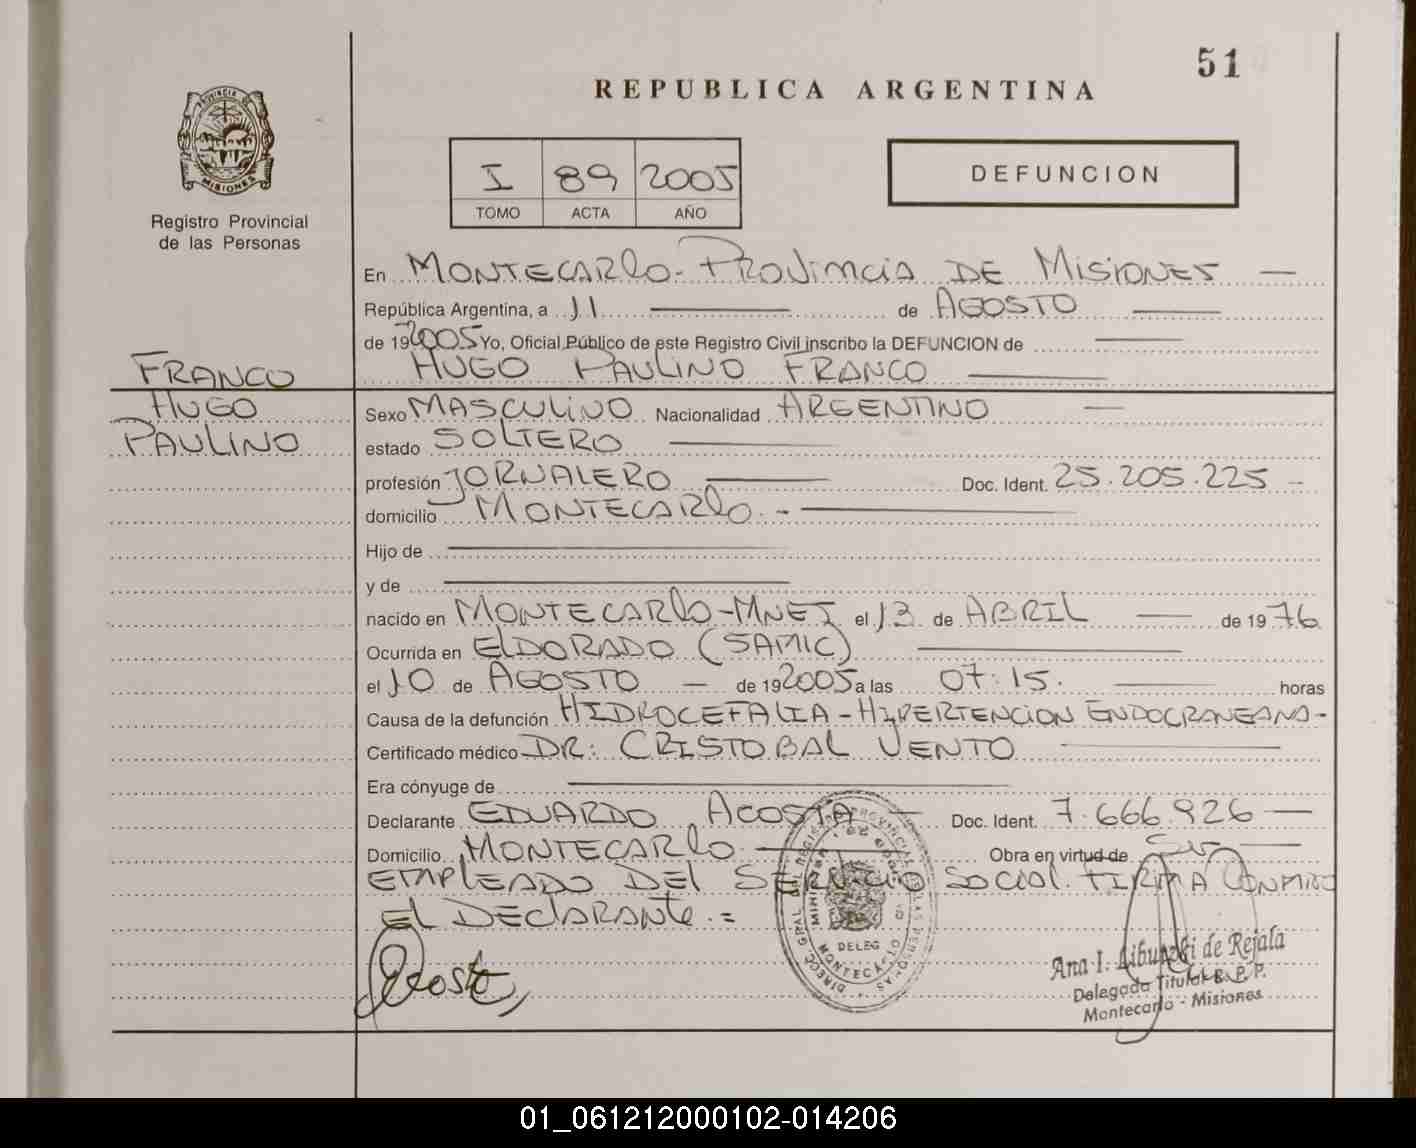 51
REPUBLICA ARGENTINA
PROVINCIA DE
MISIONES
Registro Provincial
de las Personas
I 89 2005
TOMO ACTA AÑO
DEFUNCION
En MONTECARLO - PROVINCIA DE MISIONES —
República Argentina, a 11 — de AGOSTO —
de 19 2005 Yo, Oficial Público de este Registro Civil inscribo la DEFUNCION de —
HUGO PAULINO FRANCO —
FRANCO
HUGO
PAULINO
Sexo MASCULINO Nacionalidad ARGENTINO —
estado SOLTERO —
profesión JORNALERO — Doc. Ident. 25.205.225 -
domicilio MONTECARLO. - —
Hijo de —
y de —
nacido en MONTECARLO-MNES el 13 de ABRIL — de 19 76
Ocurrida en ELDORADO (SAMIC) —
el 10 de AGOSTO — de 19 2005 a las 07:15. — horas
Causa de la defunción HIDROCEFALIA - HIPERTENCION ENDOCRANEANA -
Certificado médico DR: CRISTOBAL VENTO —
Era cónyuge de —
Declarante EDUARDO ACOSTA — Doc. Ident. 7.666.926 —
Domicilio MONTECARLO — Obra en virtud de Su —
EMPLEADO DEL SERVICIO SOCIAL. FIRMA CONMIGO
EL DECLARANTE. =
Acosta
DELEG
MONTECARLO
Ana I. de Rejala
Delegada Titular R. P. P.
Montecarlo - Misiones
01_061212000102-014206